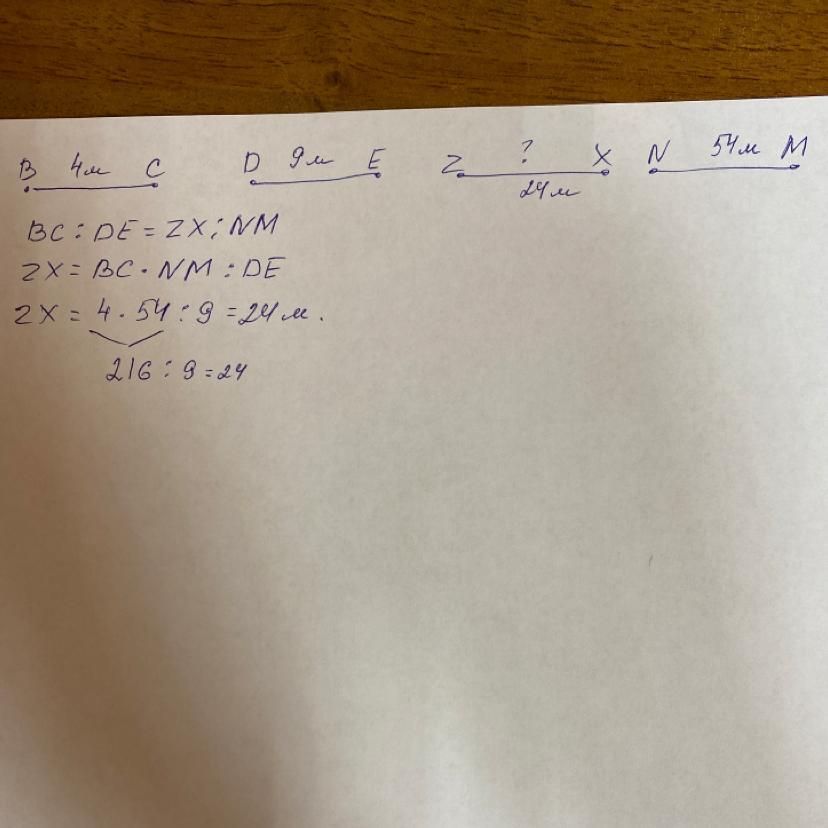 B 4м C D 9м E Z ? X N 54м M
24м
BC : DE = ZX : NM
ZX = BC · NM : DE
ZX = 4 · 54 : 9 = 24м.
216 : 9 = 24